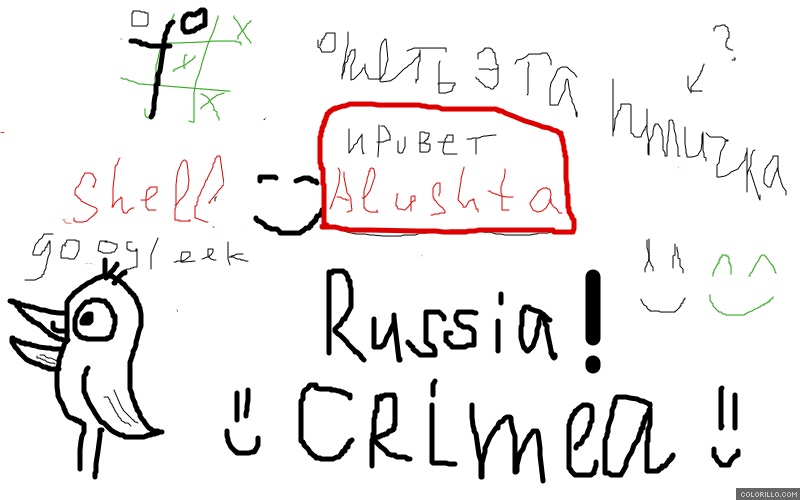 ?
опеть эта
птичка
привет
shell Alushta
googleek
Russia!
CRimea
COLORILLO.COM